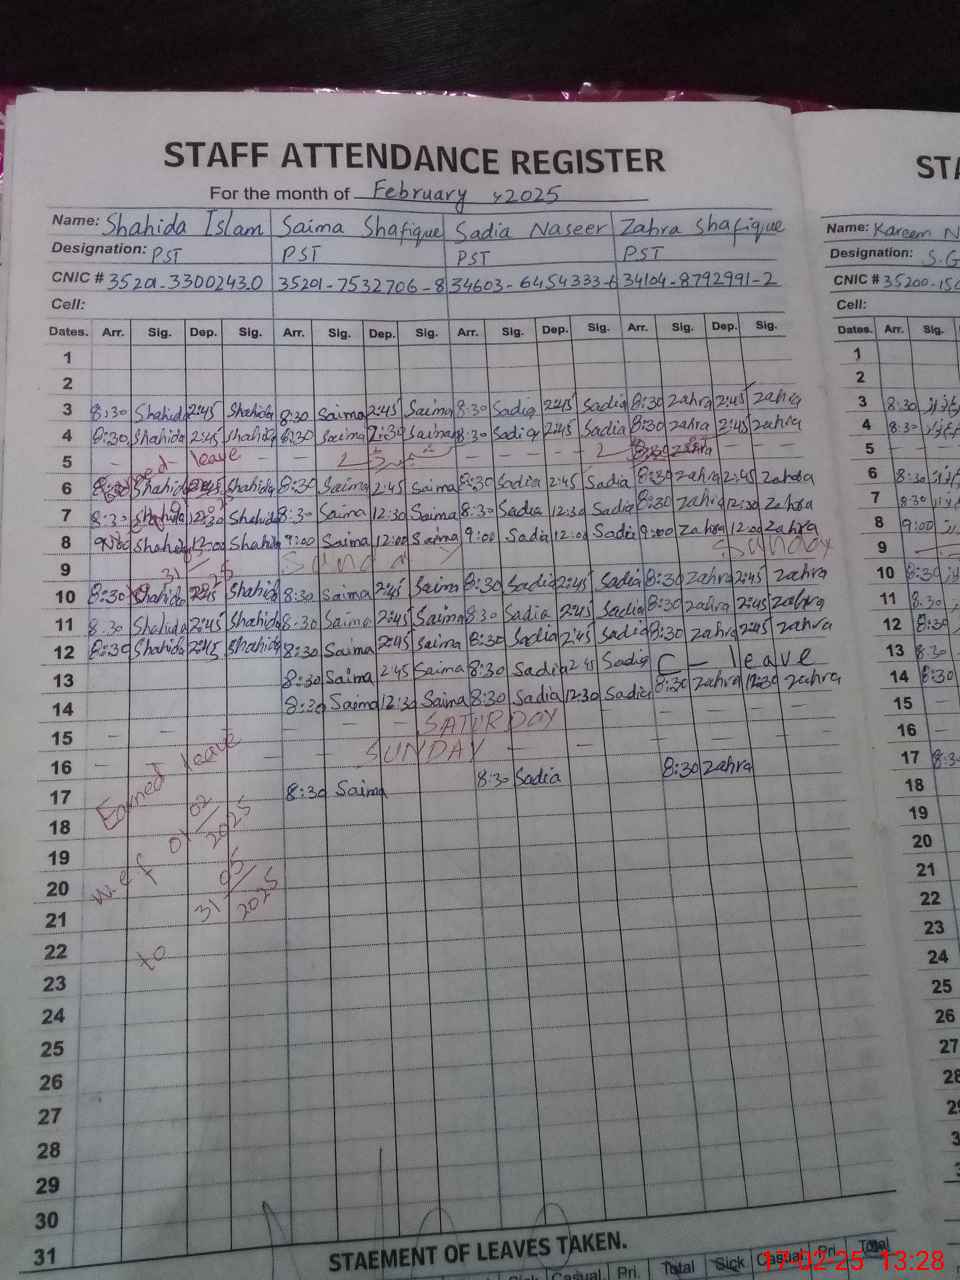 STAFF ATTENDANCE REGISTER
For the month of February, 2025
Name: Shahida Islam Saima Shafique Sadia Naseer Zahra Shafique
Designation: PST PST PST PST
CNIC # 35201-3300243.0 35201-7532706-8 34603-6454333-6 34104-8792991-2
Cell:
Dates. Arr. Sig. Dep. Sig. Arr. Sig. Dep. Sig. Arr. Sig. Dep. Sig. Arr. Sig. Dep. Sig.
1
2
3 8:30 Shahida 2:45 Shahida 8:30 Saima 2:45 Saima 8:30 Sadia 2:45 Sadia 8:30 Zahra 2:45 Zahra
4 8:30 Shahida 2:45 Shahida 8:30 Saima 2:30 Saima 8:30 Sadia 2:45 Sadia 8:30 Zahra 2:45 Zahra
5 - leave - - - - - 8:30 Zahra - -
6 Shahida 2:45 Shahida 8:30 Saima 2:45 Saima 8:30 Sadia 2:45 Sadia 8:30 Zahra 2:45 Zahra
7 8:30 Shahida 12:30 Shahida 8:30 Saima 12:30 Saima 8:30 Sadia 12:30 Sadia 8:30 Zahra 12:30 Zahra
8 9:00 Shahida 12:00 Shahida 9:00 Saima 12:00 Saima 9:00 Sadia 12:00 Sadia 9:00 Zahra 12:00 Zahra
9 31 25 Sunday Sunday
10 8:30 Shahida 2:45 Shahida 8:30 Saima 2:45 Saima 8:30 Sadia 2:45 Sadia 8:30 Zahra 2:45 Zahra
11 8:30 Shahida 2:45 Shahida 8:30 Saima 2:45 Saima 8:30 Sadia 2:45 Sadia 8:30 Zahra 2:45 Zahra
12 8:30 Shahida 2:45 Shahida 8:30 Saima 2:45 Saima 8:30 Sadia 2:45 Sadia 8:30 Zahra 2:45 Zahra
13 8:30 Saima 2:45 Saima 8:30 Sadia 2:45 Sadia C - leave
14 8:30 Saima 12:30 Saima 8:30 Sadia 12:30 Sadia 8:30 Zahra 12:30 Zahra
15 - - - - - SATURDAY - - - -
16 - - SUNDAY - - - - -
17 8:30 Saima 8:30 Sadia 8:30 Zahra
Earned leave
w.e.f 01/02/2025
to 31/05/2025
18
19
20
21
22
23
24
25
26
27
28
29
30
31
STAEMENT OF LEAVES TAKEN.
Sick Casual Pri. Total Sick Casual Pri. Total
STA
Name: Kareem N
Designation: S.G
CNIC # 35200-150
Cell:
Dates. Arr. Sig.
1
2
3 8:30
4 8:30
5 -
6 8:30
7 8:30
8 9:00
9
10 8:30
11 8:30
12 8:30
13 8:30
14 8:30
15 -
16 -
17 8:3
18
19
20
21
22
23
24
25
26
27
28
17-02-25 13:28